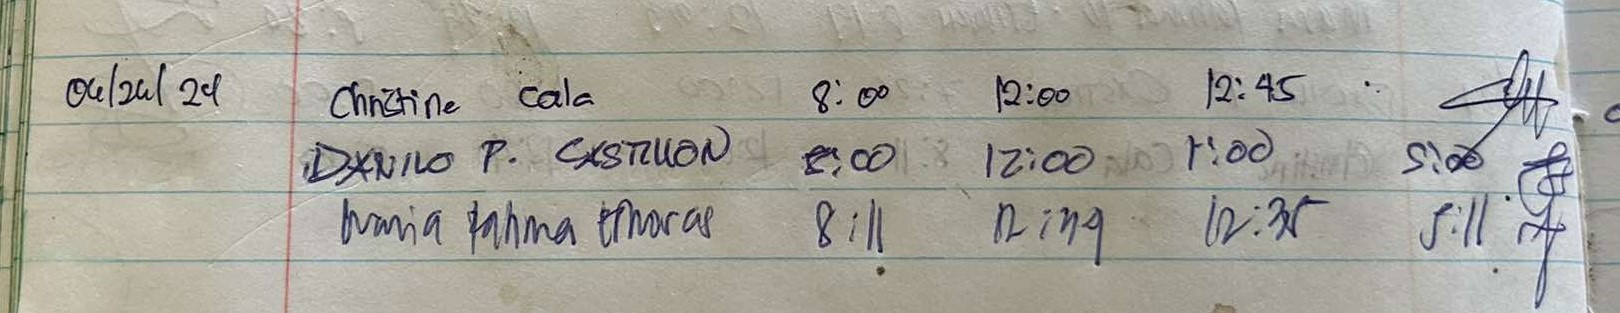 04/24/24 Christine Cala 8:00 12:00 12:45
DANILO P. CASTILLON 8:00 12:00 1:00 5:00
Maria fatima 8:11 12:35 5:11